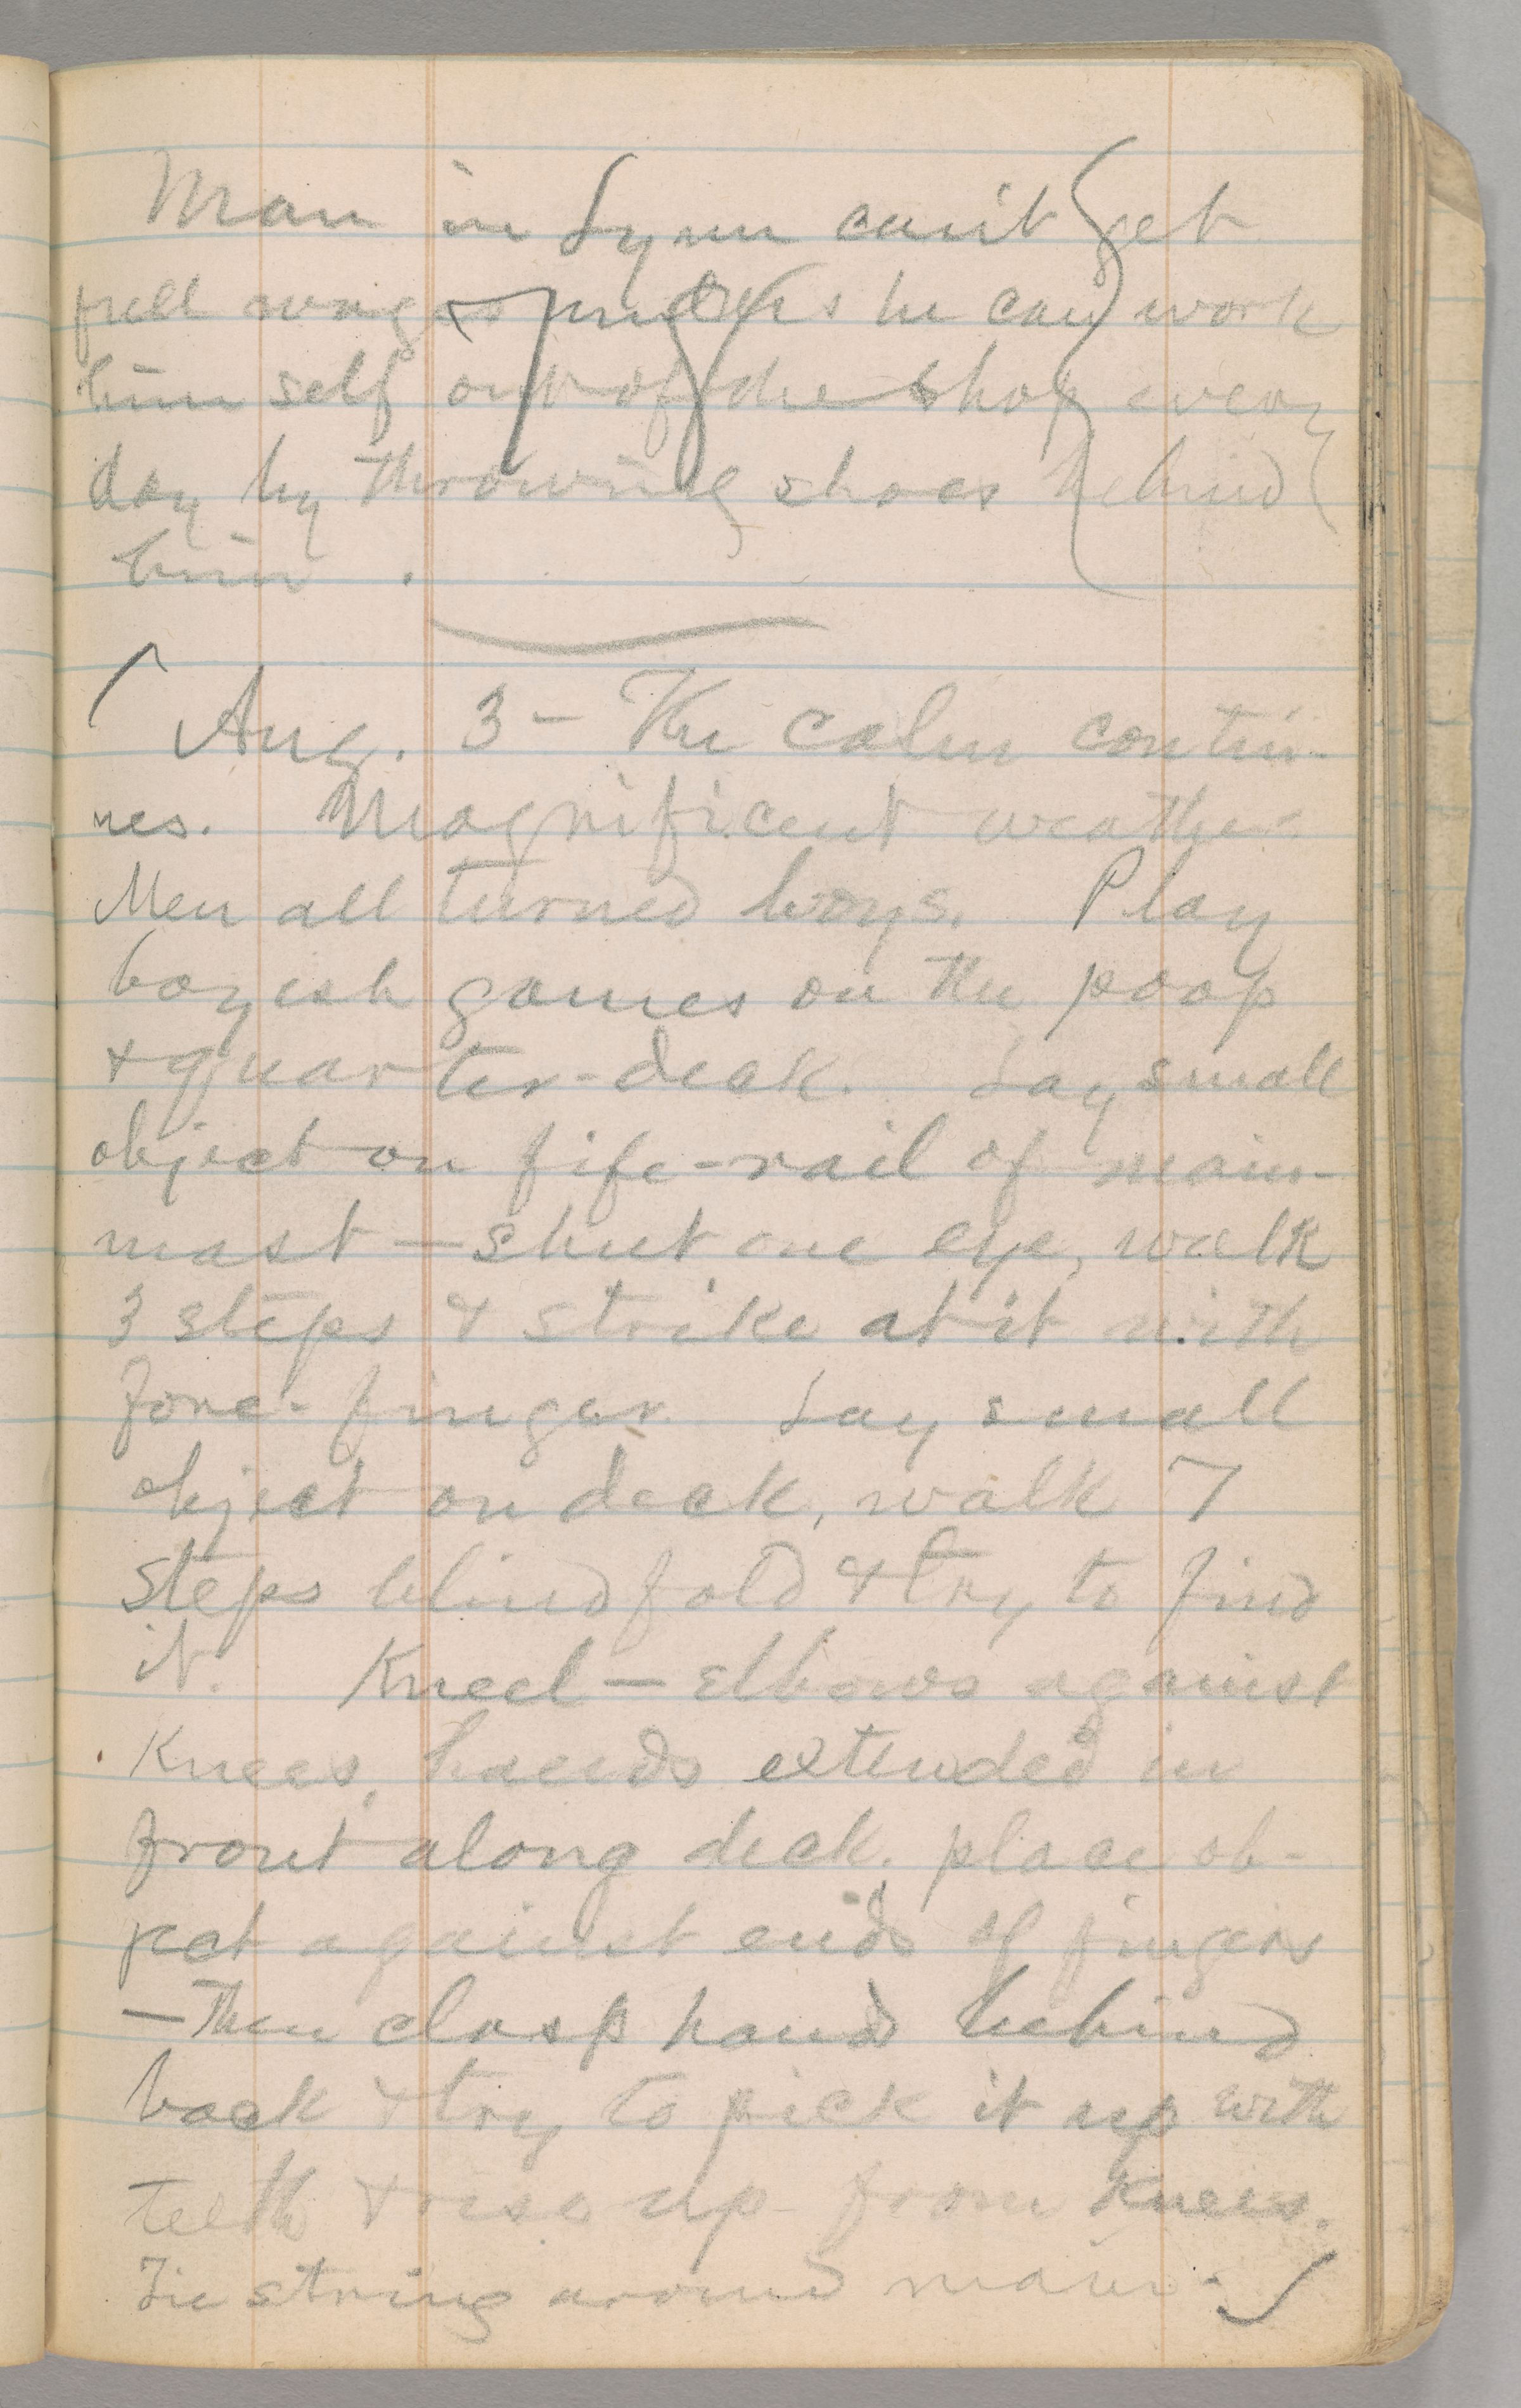 Man in Lynn can't get
full wages unless he can work
himself out of the shop every
day by throwing shoes behind
him.
Aug. 3 — The calm contin-
ues. Magnificent weather.
Men all turned boys. Play
boyish games on the poop
& quarter-deck. Lay small
object on fife-rail of main-
mast — shut one eye, walk
3 steps & strike at it with
fore-finger. Lay small
object on deck, walk 7
steps blindfold & try to find
it. Kneel — elbows against
knees, hands extended in
front along deck. place ob-
ject against ends of fingers
— then clasp hands behind
back & try to pick it up with
teeth & rise up from knees.
Tie string around main-